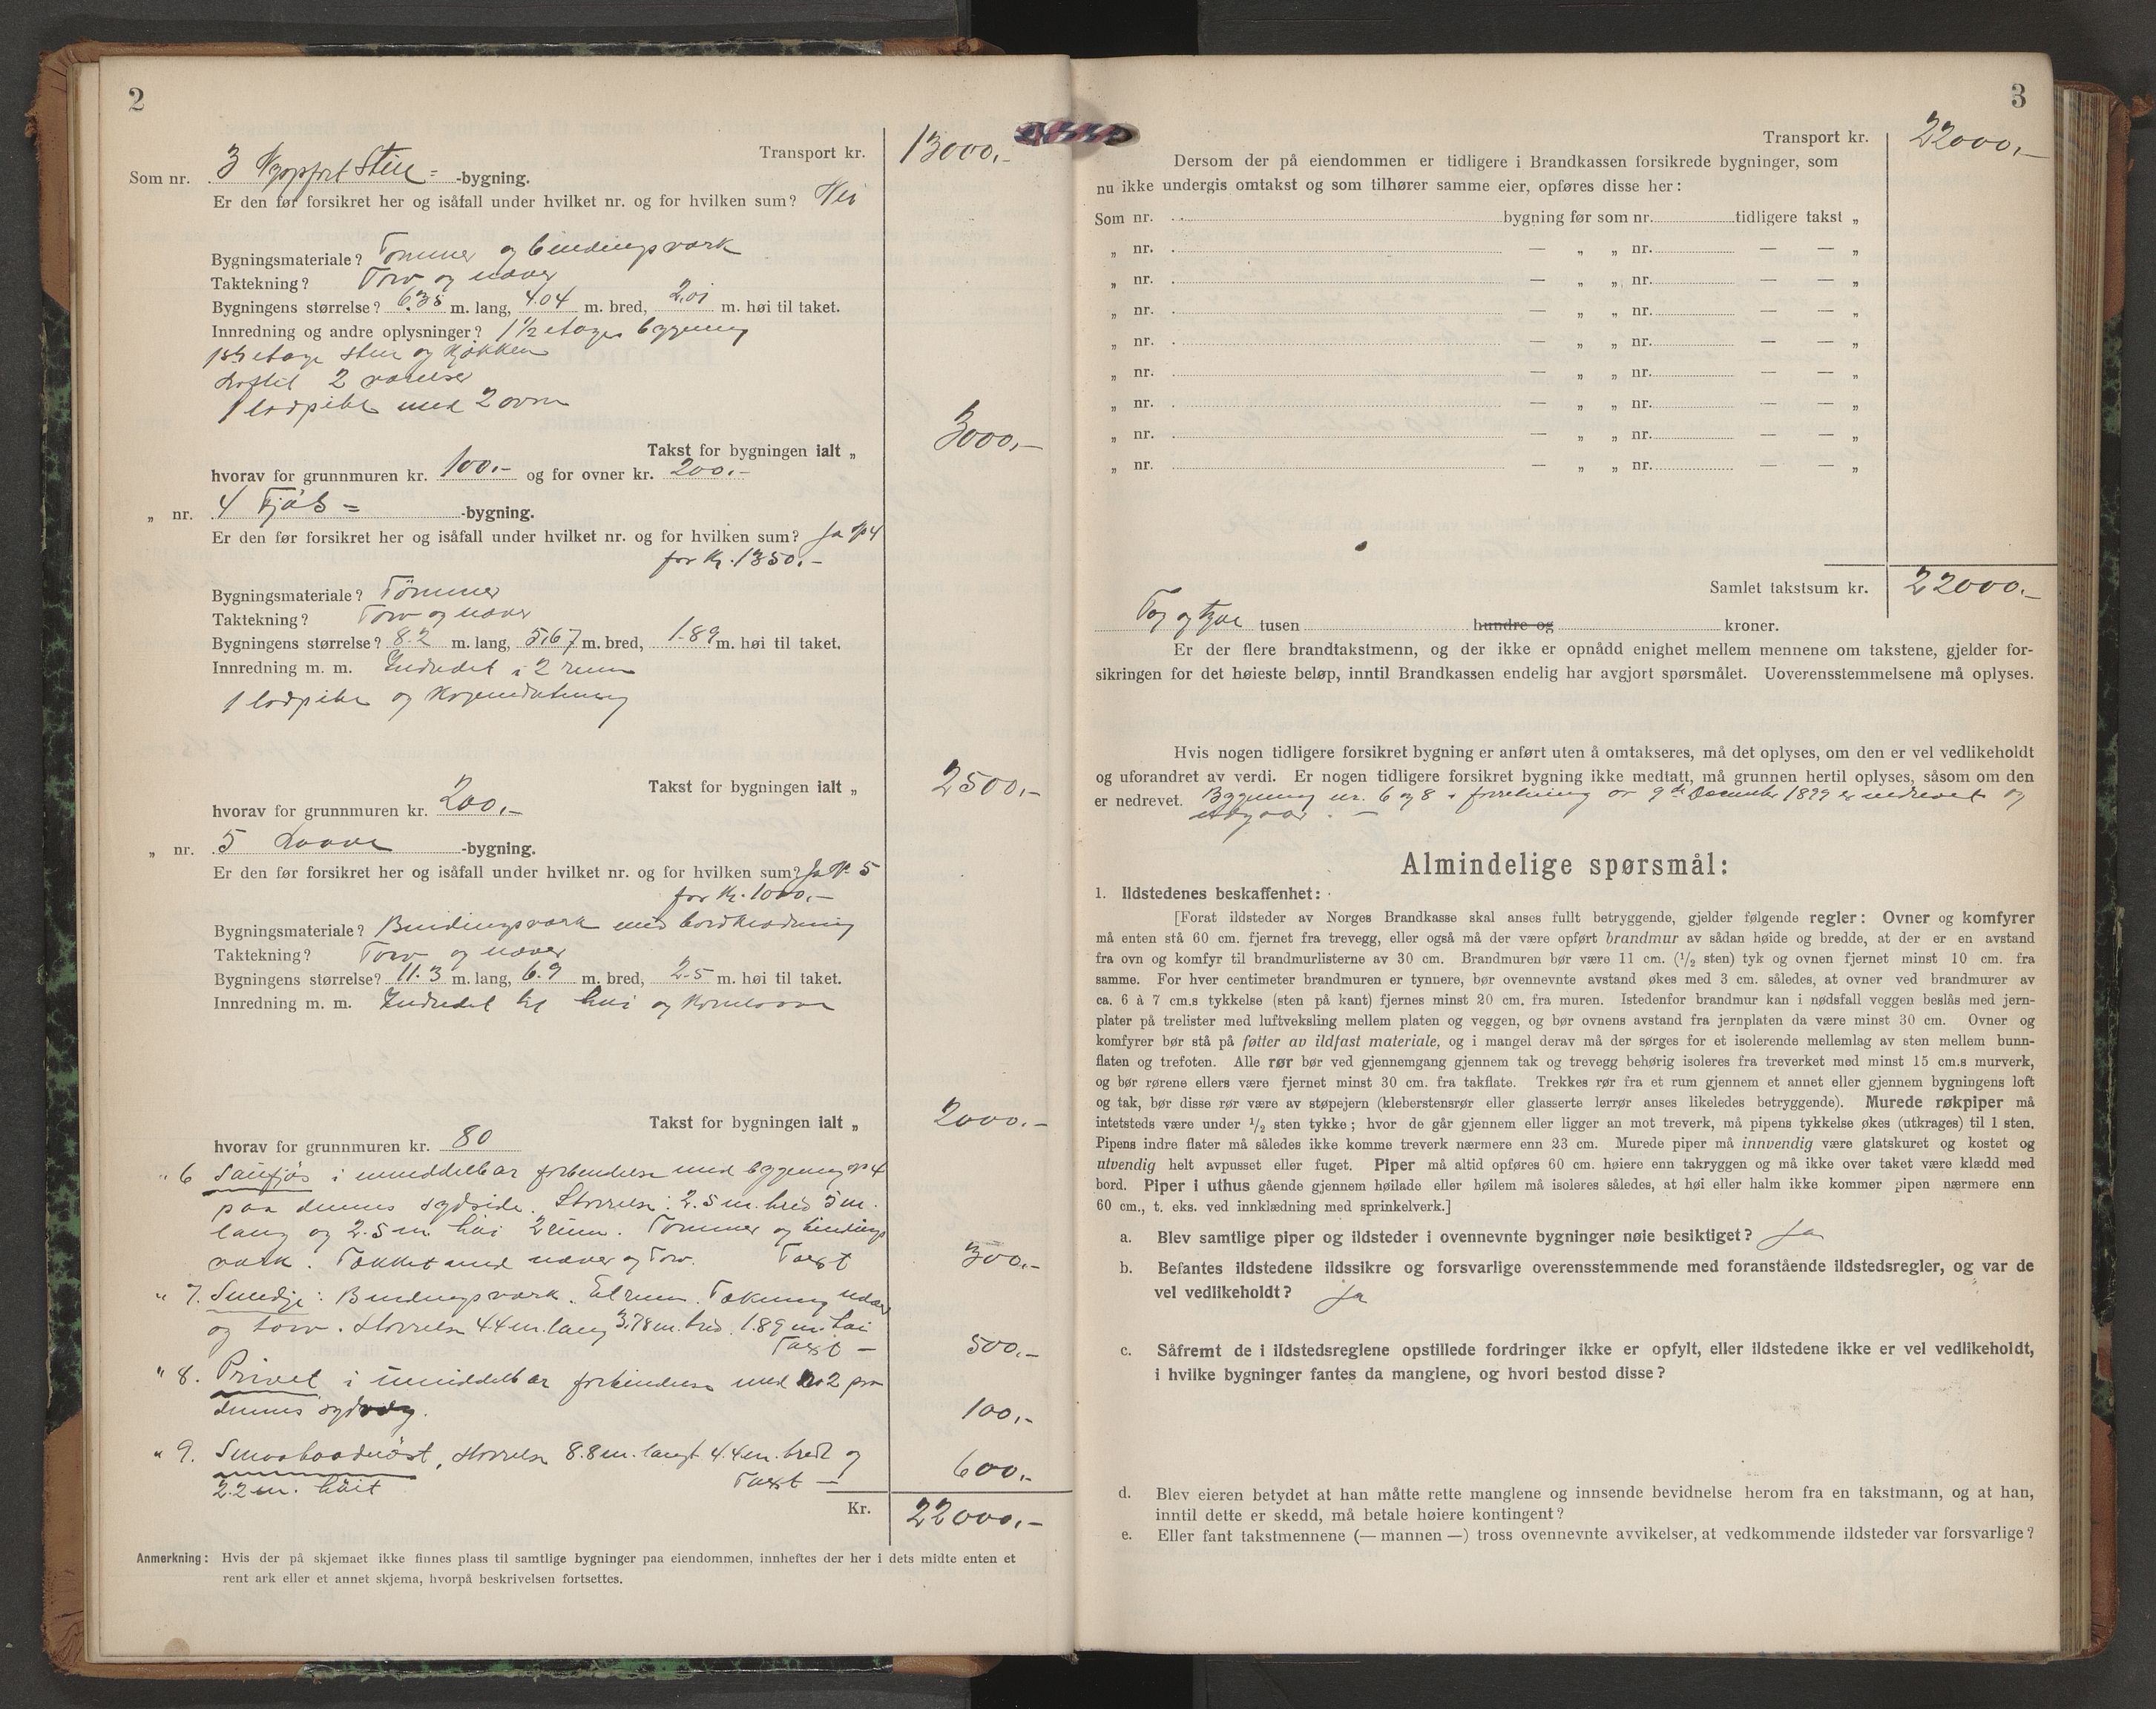 2
Transport kr. 13000,-
Som nr. 3 Nyopført Stue = -bygning.
Er den før forsikret her og isåfall under hvilket nr. og for hvilken sum? Nei
Bygningsmateriale? Tømmer og bindingsværk
Taktekning? Torv og næver
Bygningens størrelse? 6.38 m. lang, 4.04 m. bred, 2.01 m. høi til taket.
Innredning og andre oplysninger? 1 1/2 etages bygning
1ste etage stue og kjøkken
Loftet 2 værelser
1 lodpibe med 2 ovne
Takst for bygningen ialt „ 3000,-
hvorav for grunnmuren kr. 100.- og for ovner kr. 200.-
„ nr. 4 Fjøs = -bygning.
Er den før forsikret her og isåfall under hvilket nr. og for hvilken sum? Ja № 4
for Kr. 1350.-
Bygningsmateriale? Tømmer
Taktekning? Torv og næver
Bygningens størrelse? 8.2 m. lang, 5.67 m. bred, 1.89 m. høi til taket.
Innredning m. m. Indredet i 2 rum
1 lodpibe og
Takst for bygningen ialt „ 2500,-
hvorav for grunnmuren kr. 200,-
„ nr. 5 Laave -bygning.
Er den før forsikret her og isåfall under hvilket nr. og for hvilken sum? Ja № 5
for Kr. 1000,-
Bygningsmateriale? Bindingsværk med bordklædning
Taktekning? Torv og næver
Bygningens størrelse? 11.3 m. lang, 6.9 m. bred, 2.5 m. høi til taket.
Innredning m. m. Indredet til høi og kornlaave
Takst for bygningen ialt „ 2000.-
hvorav for grunnmuren kr. 80
„ 6 Saufjøs i umiddelbar forbindelse med bygning № 4
paa dennes sydside. Størrelse: 2.5 m. bred 5 m.
lang og 2.5 m. høi 2 rum. Tømmer og bindings
værk. Tækket med næver og Torv. Taxt 300.-
„ 7. Smedje: Bindingsværk. Et rum. Tækning næver
og torv. Størrelse 4.4 m. lang 3.78 m. bred. 1.89 m. høi
Taxt - 500.-
„ 8. Privet i umiddelbar forbindelse med no 2 paa
dennes sydvæg. 100,-
„ 9. Smaabaadnøst, størrelse 8.8 m. langt 4.4 m. bredt og
2.2 m. høit Taxt - 600.-
Kr. 22000,-
Anmerkning: Hvis der på skjemaet ikke finnes plass til samtlige bygninger paa eiendommen, innheftes der her i dets midte enten et
rent ark eller et annet skjema, hvorpå beskrivelsen fortsettes.
3
Transport kr. 22000,-
Dersom der på eiendommen er tidligere i Brandkassen forsikrede bygninger, som
nu ikke undergis omtakst og som tilhører samme eier, opføres disse her:
Som nr. bygning før som nr. tidligere takst „
„ nr. — „ „ nr. — — „
„ nr. — „ „ nr. — — „
„ nr. — „ „ nr. — — „
„ nr. — „ „ nr. — — „
„ nr. — „ „ nr. — — „
„ nr. — „ „ nr. — — „
„ nr. — „ „ nr. — — „
„ nr. — „ „ nr. — — „
Samlet takstsum kr. 22000.-
To og tyve tusen hundre og kroner.
Er der flere brandtakstmenn, og der ikke er opnådd enighet mellem mennene om takstene, gjelder for-
sikringen for det høieste beløp, inntil Brandkassen endelig har avgjort spørsmålet. Uoverensstemmelsene må oplyses.
Hvis nogen tidligere forsikret bygning er anført uten å omtakseres, må det oplyses, om den er vel vedlikeholdt
og uforandret av verdi. Er nogen tidligere forsikret bygning ikke medtatt, må grunnen hertil oplyses, såsom om den
er nedrevet. Bygning nr. 6 og 8 i forretning av 9de December 1899 er nedrevet og
utgaar. -
Almindelige spørsmål:
1. Ildstedenes beskaffenhet:
[Forat ildsteder av Norges Brandkasse skal anses fullt betryggende, gjelder følgende regler: Ovner og komfyrer
må enten stå 60 cm. fjernet fra trevegg, eller også må der være opført brandmur av sådan høide og bredde, at der er en avstand
fra ovn og komfyr til brandmurlisterne av 30 cm. Brandmuren bør være 11 cm. (1/2 sten) tyk og ovnen fjernet minst 10 cm. fra
samme. For hver centimeter brandmuren er tynnere, bør ovennevnte avstand økes med 3 cm. således, at ovner ved brandmurer av
ca. 6 à 7 cm.s tykkelse (sten på kant) fjernes minst 20 cm. fra muren. Istedenfor brandmur kan i nødsfall veggen beslås med jern-
plater på trelister med luftveksling mellem platen og veggen, og bør ovnens avstand fra jernplaten da være minst 30 cm. Ovner og
komfyrer bør stå på føtter av ildfast materiale, og i mangel derav må der sørges for et isolerende mellemlag av sten mellem bunn-
flaten og trefoten. Alle rør bør ved gjennemgang gjennem tak og trevegg behørig isoleres fra treverket med minst 15 cm.s murverk,
og bør rørene ellers være fjernet minst 30 cm. fra takflate. Trekkes rør fra et rum gjennem et annet eller gjennem bygningens loft
og tak, bør disse rør være av støpejern (kleberstensrør eller glasserte lerrør anses likeledes betryggende). Murede røkpiper må
intetsteds være under 1/2 sten tykke; hvor de går gjennem eller ligger an mot treverk, må pipens tykkelse økes (utkrages) til 1 sten.
Pipens indre flater må således ikke komme treverk nærmere enn 23 cm. Murede piper må innvendig være glatskuret og kostet og
utvendig helt avpusset eller fuget. Piper må altid opføres 60 cm. høiere enn takryggen og må ikke over taket være klædd med
bord. Piper i uthus gående gjennem høilade eller høilem må isoleres således, at høi eller halm ikke kommer pipen nærmere enn
60 cm., t. eks. ved innklædning med sprinkelverk.]
a. Blev samtlige piper og ildsteder i ovennevnte bygninger nøie besiktiget? Ja
b. Befantes ildstedene ildssikre og forsvarlige overensstemmende med foranstående ildstedsregler, og var de
vel vedlikeholdt? Ja
c. Såfremt de i ildstedsreglene opstillede fordringer ikke er opfylt, eller ildstedene ikke er vel vedlikeholdt,
i hvilke bygninger fantes da manglene, og hvori bestod disse?
d. Blev eieren betydet at han måtte rette manglene og innsende bevidnelse herom fra en takstmann, og at han,
inntil dette er skedd, må betale høiere kontingent?
e. Eller fant takstmennene (— mannen —) tross ovennevnte avvikelser, at vedkommende ildsteder var forsvarlige?